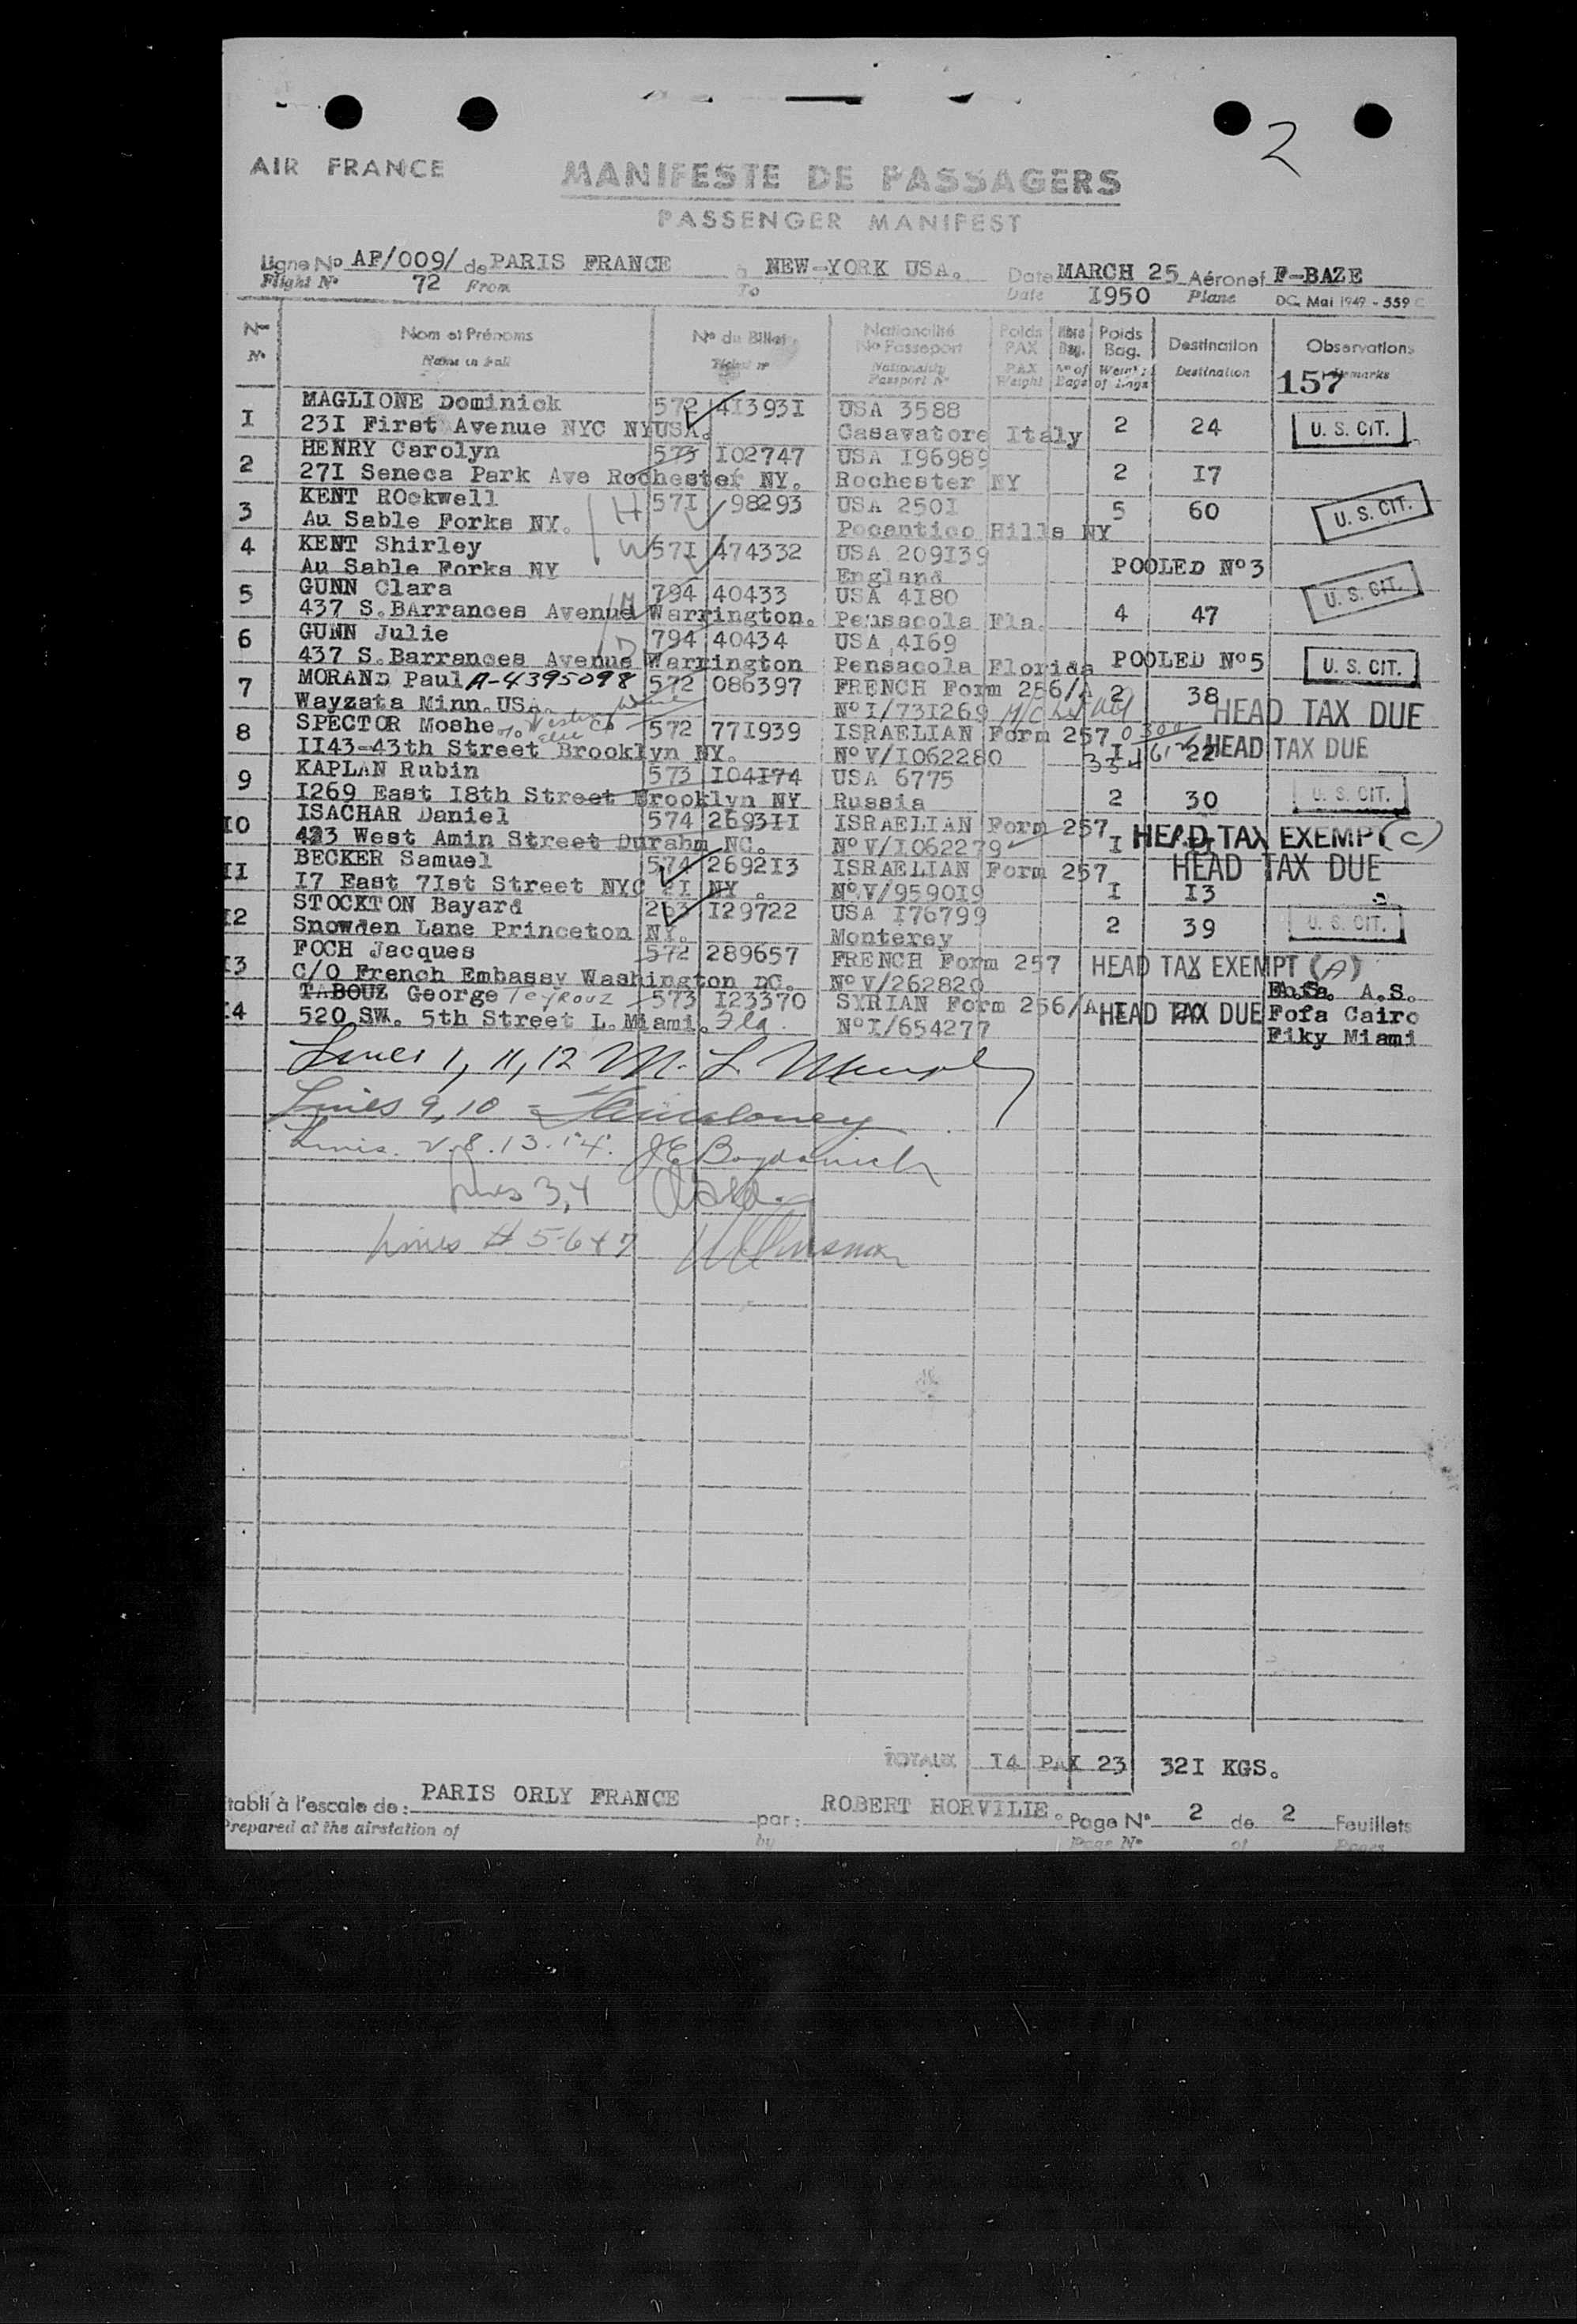 2
AIR FRANCE
MANIFESTE DE PASSAGERS
PASSENGER MANIFEST
Ligne No AF/009/ de PARIS FRANCE à NEW-YORK USA. Date MARCH 25 Aéronef F-BAZE
Flight No 72 From To Date 1950 Plane DC. Mai 1949 - 559 C
Nos Nom et Prénoms No du Billet Nationalité No Passeport Poids PAX Nbre Bag. Poids Bag. Destination Observations
No Name in full Ticket no Nationality Passport No PAX Weight No of Bags Weight of bags Destination Remarks
157
MAGLIONE Dominick 572 413931 USA 3588
1 231 First Avenue NYC NYUSA. Casavatore Italy 2 24 U. S. CIT.
HENRY Carolyn 573 102747 USA 196989
2 271 Seneca Park Ave Rochester NY. Rochester NY 2 17
KENT ROckwell H 571 98293 USA 2501
3 Au Sable Forks NY. Pocantico Hills NY 5 60 U. S. CIT.
4 KENT Shirley W 571 474332 USA 209139
Au Sable Forks NY England POOLED No3
GUNN Clara M 794 40433 USA 4180 U. S. CIT.
5 437 S.BArrances Avenue Warrington. Pensacola Fla. 4 47
GUNN Julie D 794 40434 USA 4169
6 437 S.Barrances Avenue Warrington Pensacola Florida POOLED No5 U. S. CIT.
7 MORAND Paul A-4395098 572 086397 FRENCH Form 256/A 2 38 HEAD TAX DUE
Wayzata Minn.USA. No I/731269
8 SPECTOR Moshe 572 771939 ISRAELIAN Form 257 0300
1143-43th Street Brooklyn NY. No V/1062280 1 22 HEAD TAX DUE
KAPLAN Rubin 573 104174 USA 6775
9 1269 East 18th Street Brooklyn NY Russia 2 30 U. S. CIT.
10 ISACHAR Daniel 574 269311 ISRAELIAN Form 257
423 West Amin Street Durahm NC. No V/1062279 1 HEAD TAX EXEMPT (C)
11 BECKER Samuel 574 269213 ISRAELIAN Form 257 HEAD TAX DUE
17 East 71st Street NYC 21 NY. No V/959019 1 13
12 STOCKTON Bayard 263 129722 USA 176799
Snowden Lane Princeton NY. Monterey 2 39 U. S. CIT.
13 FOCH Jacques 572 289657 FRENCH Form 257 HEAD TAX EXEMPT (A)
C/O French Embassy Washington DC. No V/262820
TABOUZ George Teyrouz 573 123370 SYRIAN Form 256/A 1 20 HEAD TAX DUE A.S.
14 520 SW. 5th Street L.Miami. Fla. No I/654277 Fofa Cairo
Fiky Miami
Lines 1, 11, 12
Lines 9, 10
Lines 2.8.13.14. J E Bogdanich
Lines 3,4
Lines # 5-6 & 7
TOTAUX 14 PAX 23 321 KGS.
Etabli à l'escale de: PARIS ORLY FRANCE par: ROBERT HORVILIE. Page No 2 de 2 Feuillets
Prepared at the airstation of by Page No of Pages